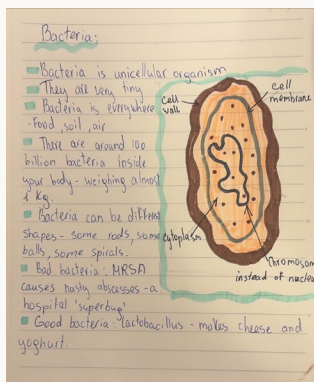 Bacteria:
Bacteria is unicellular organism
They are very tiny
Bacteria is everywhere
-food, soil, air
There are around 100
billion bacteria inside
your body - weighing almost
1 Kg.
Bacteria can be different
shapes - some rods, some
balls, some spirals.
Bad bacteria: MRSA
causes nasty abscesses - a
hospital 'superbug'
Good bacteria: Lactobacillus - makes cheese and
yoghurt.
cell
wall
cell
membrane
cytoplasm
chromosom
instead of nucleu